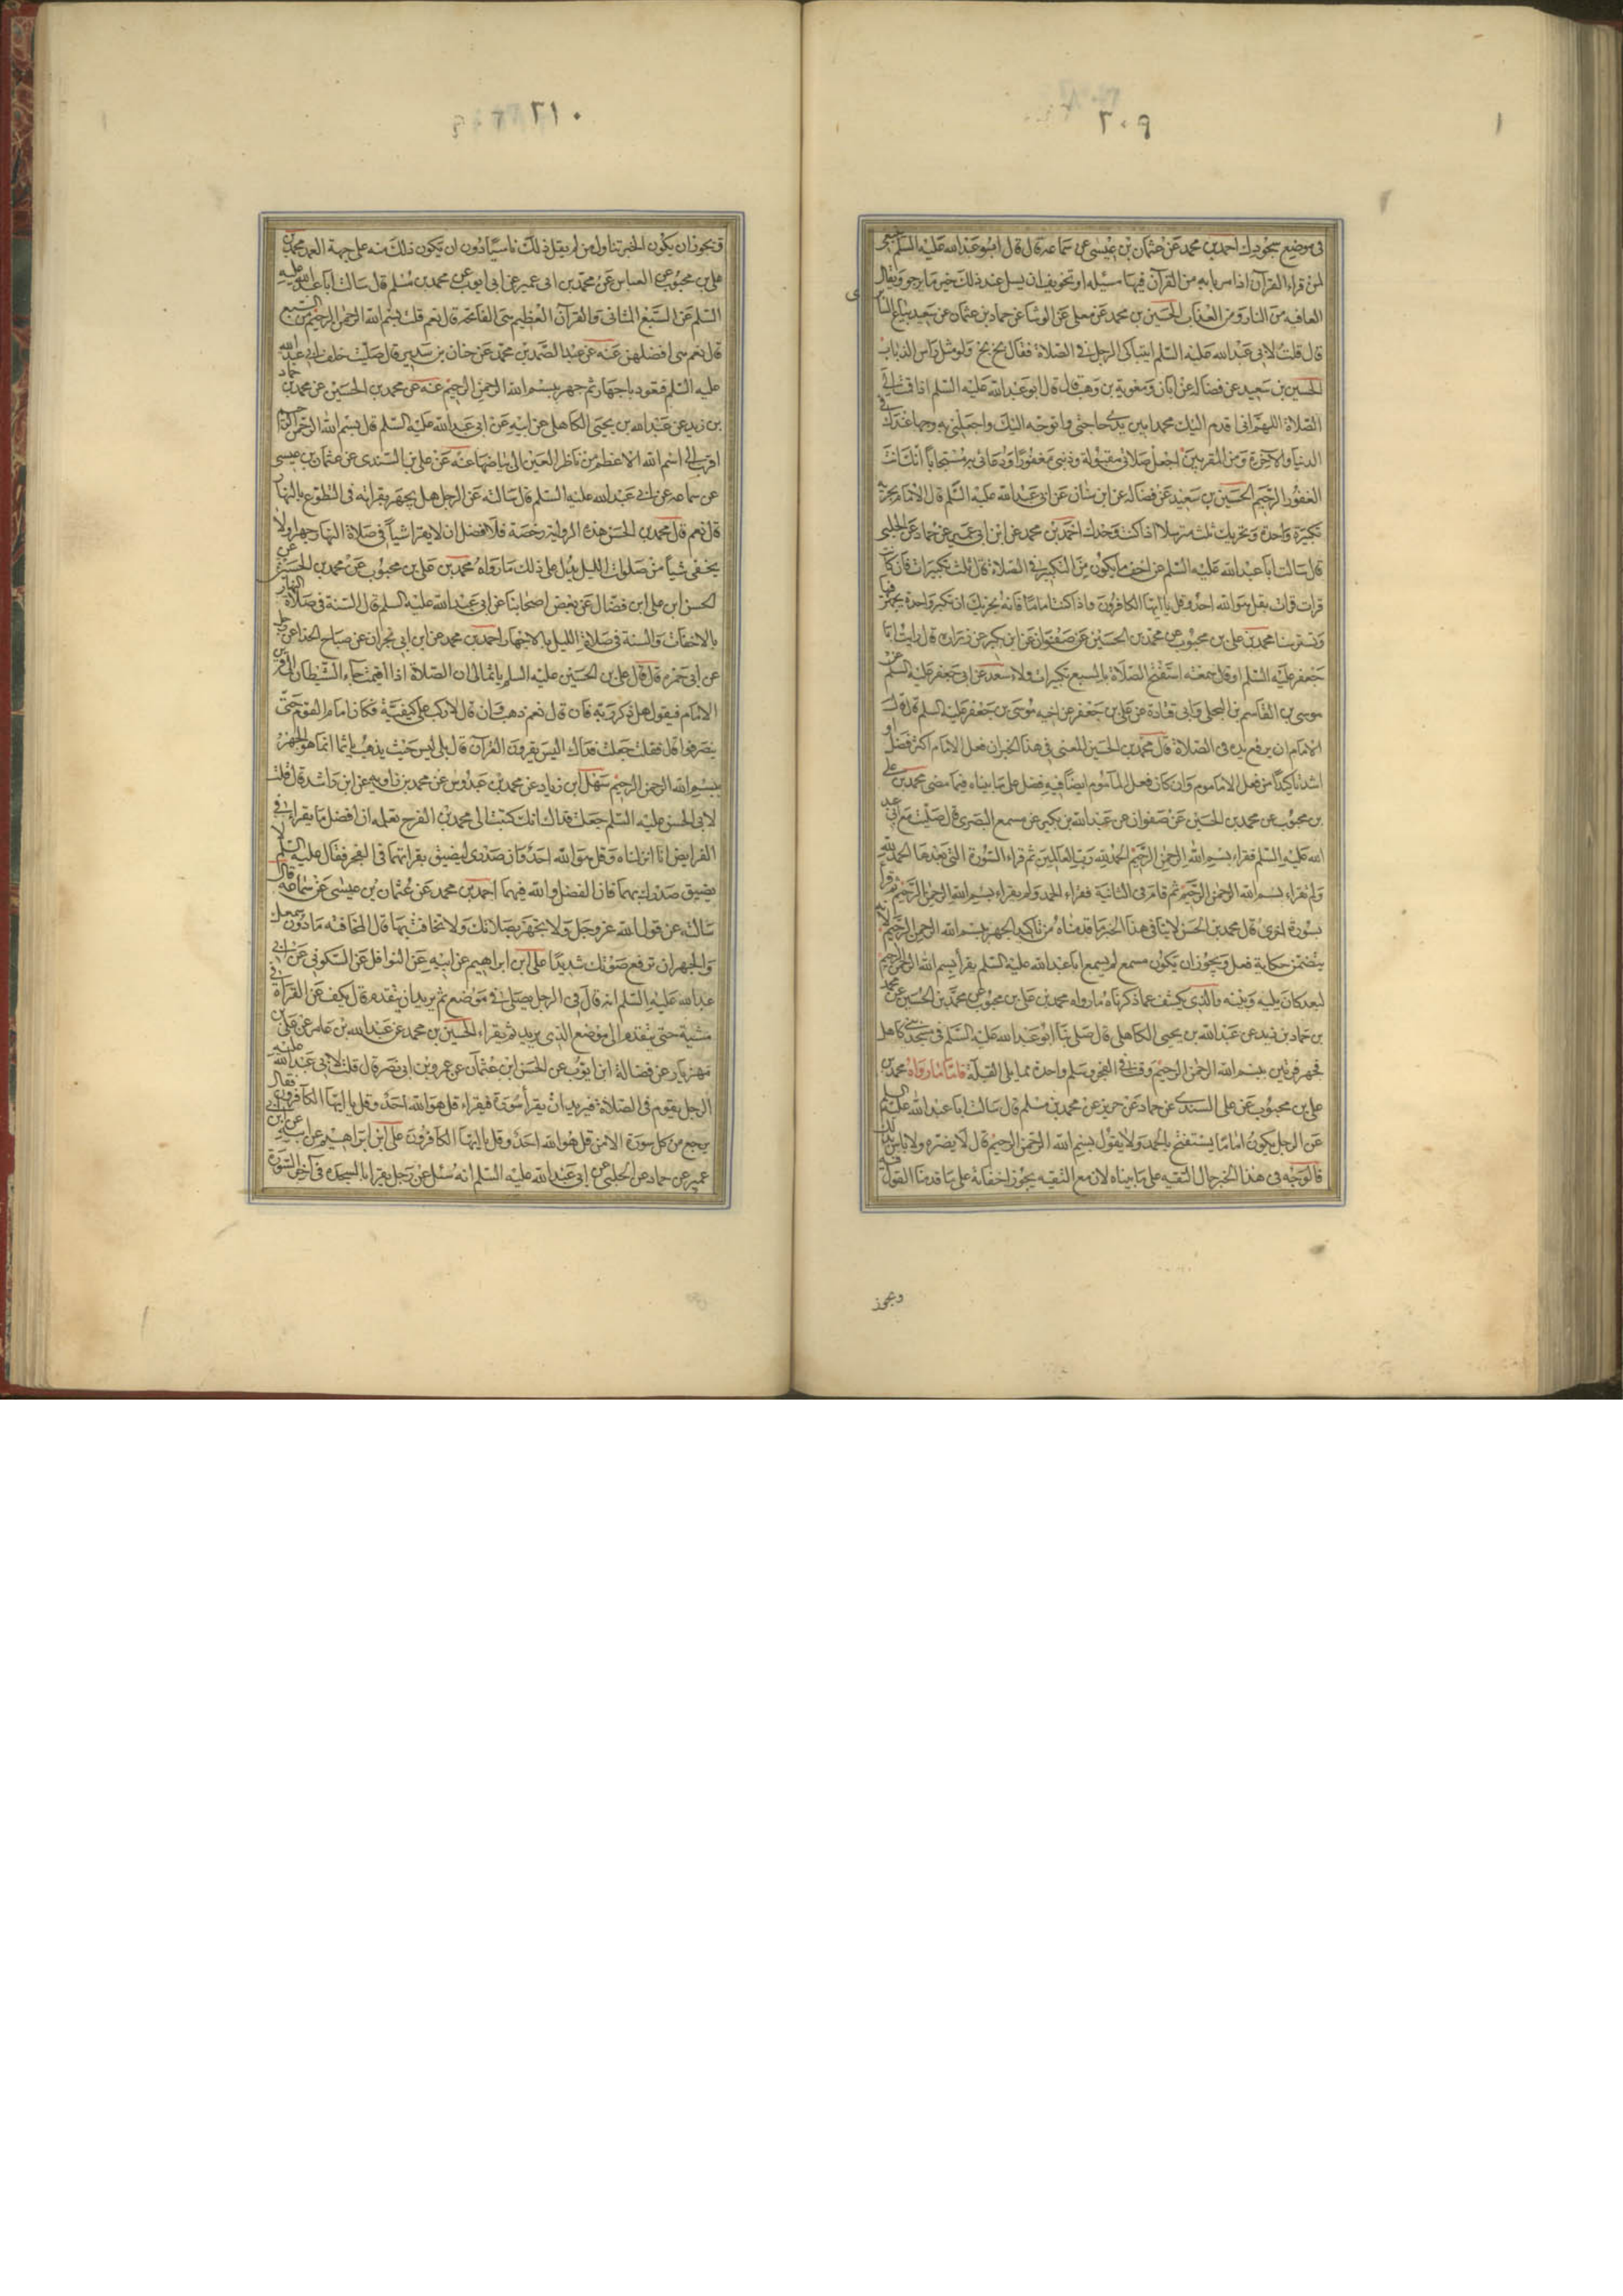 ٢٠٩
فى موضع سجودك احمد بن محمد عن عثمان بن عيسى عن سماعه قال قال ابو عبد الله عليه السلم ينبغى
لمن قراء القرآن اذا مر بايه من القرآن فيها مسئله او تخويف ان يسل عند ذلك خير ما يرجو ويسال
العافيه من النار ومن العذاب الحسين بن محمد عن معلى عن الوشا عن حماد بن عثمان عن سعيد بياع السا
قال قلت لابى عبد الله عليه السلم ايتباكى الرجل فى الصلاة فقال بخ بخ ولو مثل راس الذباب
الحسين بن سعيد عن فضاله عن ابان ومعوية بن وهب قال قال ابو عبد الله عليه السلم اذا قمت الى
الصلاة اللهم انى اقدم اليك محمدا بين يدى حاجتى واتوجه اليك واجعلنى به وجها عندك فى
الدنيا والاخرة ومن المقربين اجعل صلاتى مقبولة وذنبى مغفورا ودعائى به مستجابا انك انت
الغفور الرحيم الحسين بن سعيد عن فضاله عن ابن سنان عن ابى عبد الله عليه السلم قال الامام يجزيه
تكبيرة واحدة ويجزيك ثلث مترسلا اذا كنت وحدك احمد بن محمد عن ابن ابى عمير عن حماد عن الحلبى
قال سالت ابا عبد الله عليه السلم عن اخف ما يكون من التكبير فى الصلاة قال ثلث تكبيرات فان كانت
قرات قرات بقل هو الله احد وقل يا ايها الكافرون واذا كنت اماما فانه يجزيك ان تكبر واحدة يجهر فيها
وتسر ستا محمد بن على بن محبوب عن محمد بن الحسين عن صفوان عن ابن بكير عن زراره قال رايت ابا
جعفر عليه السلم او قال سمعته استفتح الصلاة بالسبع تكبيرات ولاء سعد عن ابى جعفر عليه السلم عن
موسى بن القاسم البجلى وابى قتادة عن على بن جعفر عن اخيه موسى بن جعفر عليه السلم قال قال
الامام ان يرفع يده فى الصلاة قال محمد بن الحسين المعنى فى هذا الخبر ان فعل الامام اكثر فضلا و
اشد تاكيدا من فعل الماموم وان كان فعل الماموم ايضا فيه فضل على ما بيناه فيما مضى محمد بن على
بن محبوب عن محمد بن الحسين عن صفوان عن عبد الله بن بكير عن مسمع البصرى قال صليت مع ابى عبد
الله عليه السلم فقراء بسم الله الرحمن الرحيم الحمد لله رب العالمين ثم قراء السورة التى بعدها الحمد لله
ولم يقراء بسم الله الرحمن الرحيم ثم قام فى الثانية فقراء الحمد ولم يقراء بسم الله الرحمن الرحيم ثم قرا
بسورة اخرى قال محمد بن الحسن لا ينافى هذا الخبر ما قدمناه من تاكيد الجهر ببسم الله الرحمن الرحيم لانه
يتضمن حكاية فعل ويجوز ان يكون مسمع لم يسمع ابا عبد الله عليه السلم يقرأ بسم الله الرحمن الرحيم
لبعد كان بينه وبينه والذى يكشف عما ذكرناه ما رواه محمد بن على بن محبوب عن محمد بن الحسين عن محمد
بن حماد بن زيد عن عبد الله بن يحيى الكاهلى قال صلى بنا ابو عبد الله عليه السلم فى مسجد بنى كاهل
فجهر مرتين ببسم الله الرحمن الرحيم وقنت فى الفجر وسلم واحدة مما يلى القبلة فاما ما رواه محمد بن
على بن محبوب عن على السندى عن حماد عن حريز عن محمد بن مسلم قال سالت ابا عبد الله عليه السلم
عن الرجل يكون اماما يستفتح بالحمد ولا يقول بسم الله الرحمن الرحيم قال لا يضره ولا باس بذلك
فالوجه فى هذا الخبر حال التقيه على ما بيناه لان مع التقيه يجوز اخفاته على ما قدمنا القول فيه
ويجوز
٢١٠
ويجوز ان يكون الخبر تناول من لم يقل ذلك ناسيا دون ان يكون ذلك منه على جهة العمد محمد بن
على بن محبوب عن العباس عن محمد بن ابى عمير عن ابى ايوب عن محمد بن مسلم قال سالت ابا عبد الله عليه
السلم عن السبع المثانى والقرآن العظيم هى الفاتحة قال نعم قلت بسم الله الرحمن الرحيم من السبع
قال نعم هى افضلهن عنه عن عبد الصمد بن محمد عن حنان بن سدير قال صليت خلف ابى عبد الله
عليه السلم فتعوذ باجهار ثم جهر ببسم الله الرحمن الرحيم عنه عن محمد بن الحسين عن محمد بن حماد
بن زيد عن عبد الله بن يحيى الكاهلى عن ابيه عن ابى عبد الله عليه السلم قال بسم الله الرحمن الرحيم
اقرب الى اسم الله الاعظم من ناظر العين الى بياضها عنه عن على بن السندى عن عثمان بن عيسى
عن سماعه عن ابى عبد الله عليه السلم قال سالته عن الرجل هل يجهر بقراته فى التطوع بالنهار
قال نعم قال محمد بن الحسن هذه الرواية رخصة فلا فضل ان لا يقرا شيأ فى صلاة النهار جهرا ولا
يخفى شيأ من صلوة الليل يدل على ذلك ما رواه محمد بن على بن محبوب عن محمد بن الحسين عن
الحسن ابن على ابن فضال عن بعض اصحابنا عن ابى عبد الله عليه السلم قال السنة فى صلاة النهار
بالاخفات والسنة فى صلاة الليل بالاجهار احمد بن محمد عن ابن ابى نجران عن صباح الحذا عن رجل
عن ابى حمزه قال قال على بن الحسين عليه السلم يا ثمالى ان الصلاة اذا اقيمت جاء الشيطان الى قرين
الامام فيقول هل ذكر ربه فان قال نعم ذهب وان قال لا ركب على كتفيه فكان امام القوم حتى
ينصرفوا قال فقلت جعلت فداك اليس يقرون القرآن قال بلى ليس حيث يذهب يا ثمالى انما هو الجهر
ببسم الله الرحمن الرحيم سهل ابن زياد عن محمد بن عبدوس عن محمد بن زاويه عن ابن راشد قال قلت
لابى الحسن عليه السلم جعلت فداك انك كتبت الى محمد بن الفرج تعلمه ان افضل ما يقراء فى
الفرايض انا انزلناه وقل هو الله احد وان صدرى ليضيق بقراتهما فى الفجر فقال عليه السلم لا
يضيق صدرك بهما فان الفضل والله فيهما احمد بن محمد عن عثمان بن عيسى عن سماعه قال
سالته عن قول الله عز وجل ولا تجهر بصلاتك ولا تخافت بها قال المخافته ما دون سمعك
والجهر ان ترفع صوتك شديدا على ابن ابراهيم عن ابيه عن النوافل عن السكونى عن ابى
عبد الله عليه السلم انه قال فى الرجل يصلى فى موضع ثم يريد ان يتقدم قال يكف عن القراة فى
مشية حتى يتقدم الى موضع الذى يريد ثم يقراء الحسين بن محمد عن عبد الله بن عامر عن على بن
مهزيار عن فضالة ابن ايوب عن الحسن ابن عثمان عن عمرو بن ابى نصر قال قلت لابى عبد الله عليه
الرجل يقوم فى الصلاة فيريد ان يقرأ سورة فيقراء قل هو الله احد وقل يا ايها الكافرون فقال
يرجع من كل سورة الا من قل هو الله احد وقل يا ايها الكافرون على ابن ابراهيم عن ابيه عن ابن ابى
عمير عن حماد عن الحلبى عن ابى عبد الله عليه السلم انه سئل عن رجل يقرا بالسجده فى آخر السورة